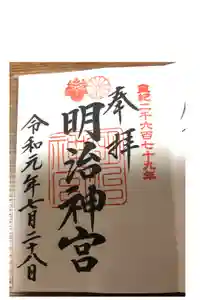 皇紀二千六百七十九年
奉拝
明治神宮
令和元年七月二十八日